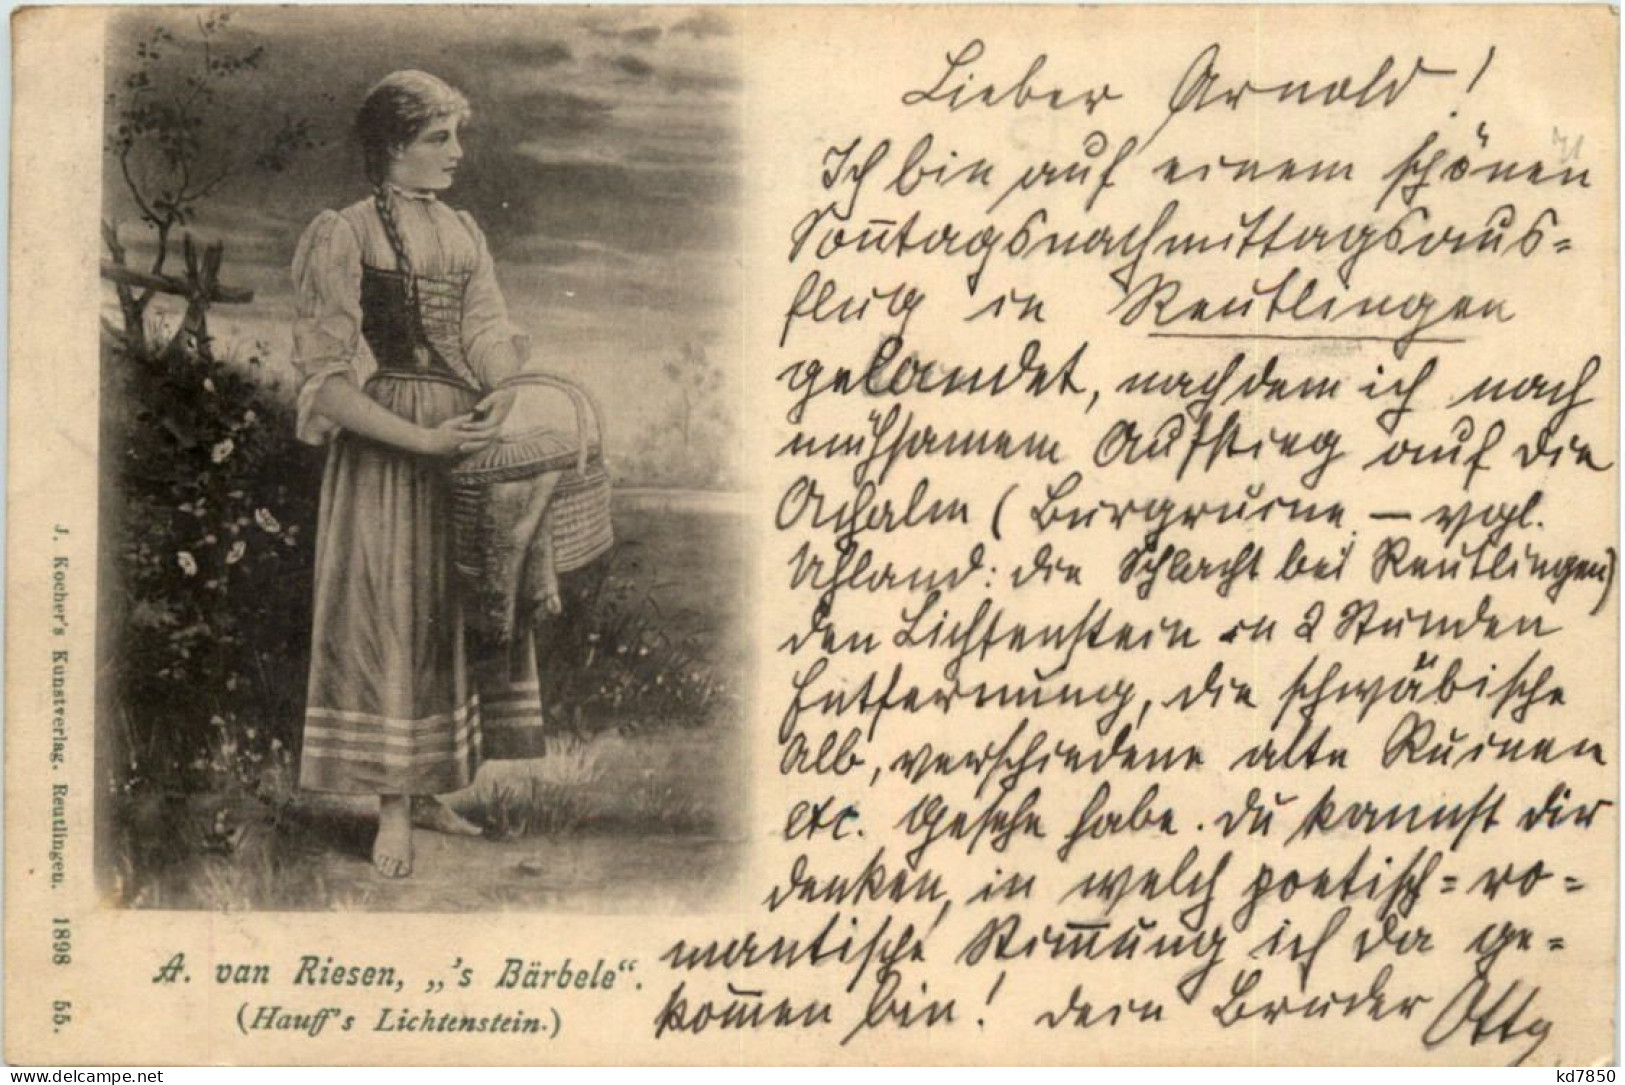 Lieber Arnold!
Ich bin auf einem schönen
Son̄tagsnachmittagsaus-
flug in Reutlingen
gelandet, nachdem ich nach
mühsamem Aufstieg auf die
Achalm (Burgruine – vgl.
Uhland: die Schlacht bei Reutlingen)
den Lichtenstein in 2 Stunden
Entfernung, die schwäbische
Alb, verschiedene alte Ruinen
etc. gesehe habe. Du kannst dir
denken, in welch poetisch-ro-
mantische Stim̄ung ich da ge-
kom̄en bin! dein Bruder Otto
A. van Riesen, „'s Bärbele“.
(Hauff's Lichtenstein.)
J. Kocher's Kunstverlag, Reutlingen. 1898 55.
kd7850